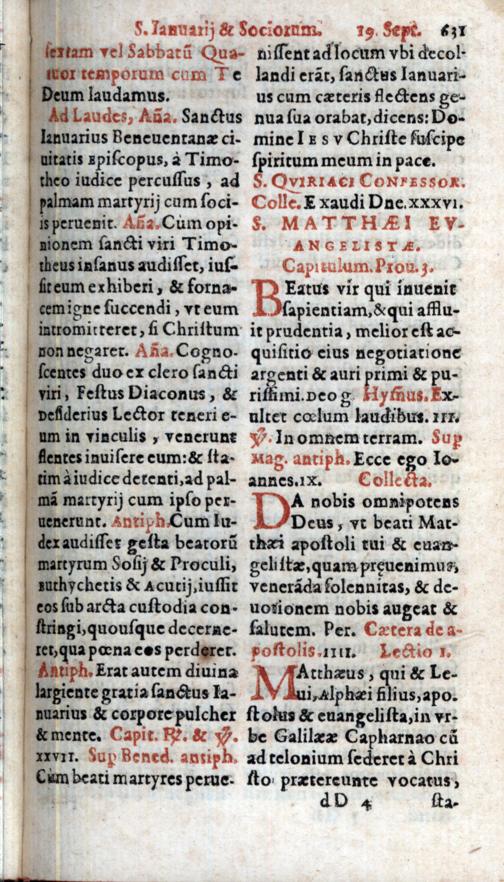 S. Ianuarij & Sociorum. 19. Sept. 631
sextam vel Sabbatū Qua-
tuor temporum cum Te
Deum laudamus.
Ad Laudes, Aña. Sanctus
Ianuarius Beneuentanæ ci-
uitatis Episcopus, à Timo-
theo iudice percussus, ad
palmam martyrij cum soci-
is peruenit. Aña. Cùm opi-
nionem sancti viri Timo-
theus insanus audisset, ius-
sit eum exhiberi, & forna-
cem igne succendi, vt eum
intromitteret, si Christum
non negaret. Aña. Cogno-
scentes duo ex clero sancti
viri, Festus Diaconus, &
Desiderius Lector teneri e-
um in vinculis, venerunt
flentes inuisere eum: & sta-
tim à iudice detenti, ad pal-
mā martyrij cum ipso per-
uenerunt. Antiph. Cum Iu-
dex audisset gesta beatorū
martyrum Sosij & Proculi,
Euthychetis & Acutij, iussit
eos sub arcta custodia con-
stringi, quousque decerne-
ret, qua pœna eos perderet.
Antiph. Erat autem diuina
largiente gratia sanctus Ia-
nuarius & corpore pulcher
& mente. Capit. ℟. & ℣.
XXVII. Sup Bened. antiph.
Cùm beati martyres perue-
nissent ad locum vbi decol-
landi erāt, sanctus Ianuari-
us cum cæteris flectens ge-
nua sua orabat, dicens: Do-
mine IESV Christe suscipe
spiritum meum in pace.
S. QVIRIACI CONFESSOR.
Colle. Exaudi Dne. XXXVI.
S. MATTHÆI EV-
ANGELISTÆ.
Capitulum. Prou. 3.
BEatus vir qui inuenit
sapientiam, & qui afflu-
it prudentia, melior est ac-
quisitio eius negotiatione
argenti & auri primi & pu-
rissimi. Deo g. Hymnus. Ex-
ultet cœlum laudibus. III.
℣. In omnem terram. Sup
Mag. antiph. Ecce ego Io-
annes. IX. Collecta.
DA nobis omnipotens
Deus, vt beati Mat-
thæi apostoli tui & euan-
gelistæ, quam prǫuenimus,
venerāda solennitas, & de-
uotionem nobis augeat &
salutem. Per. Cætera de a-
postolis. IIII. Lectio 1.
MAtthæus, qui & Le-
ui, Alphæi filius, apo-
stolus & euangelista, in vr-
be Galilææ Capharnao cū
ad telonium sederet à Chri
sto prætereunte vocatus,
dD 4 sta-